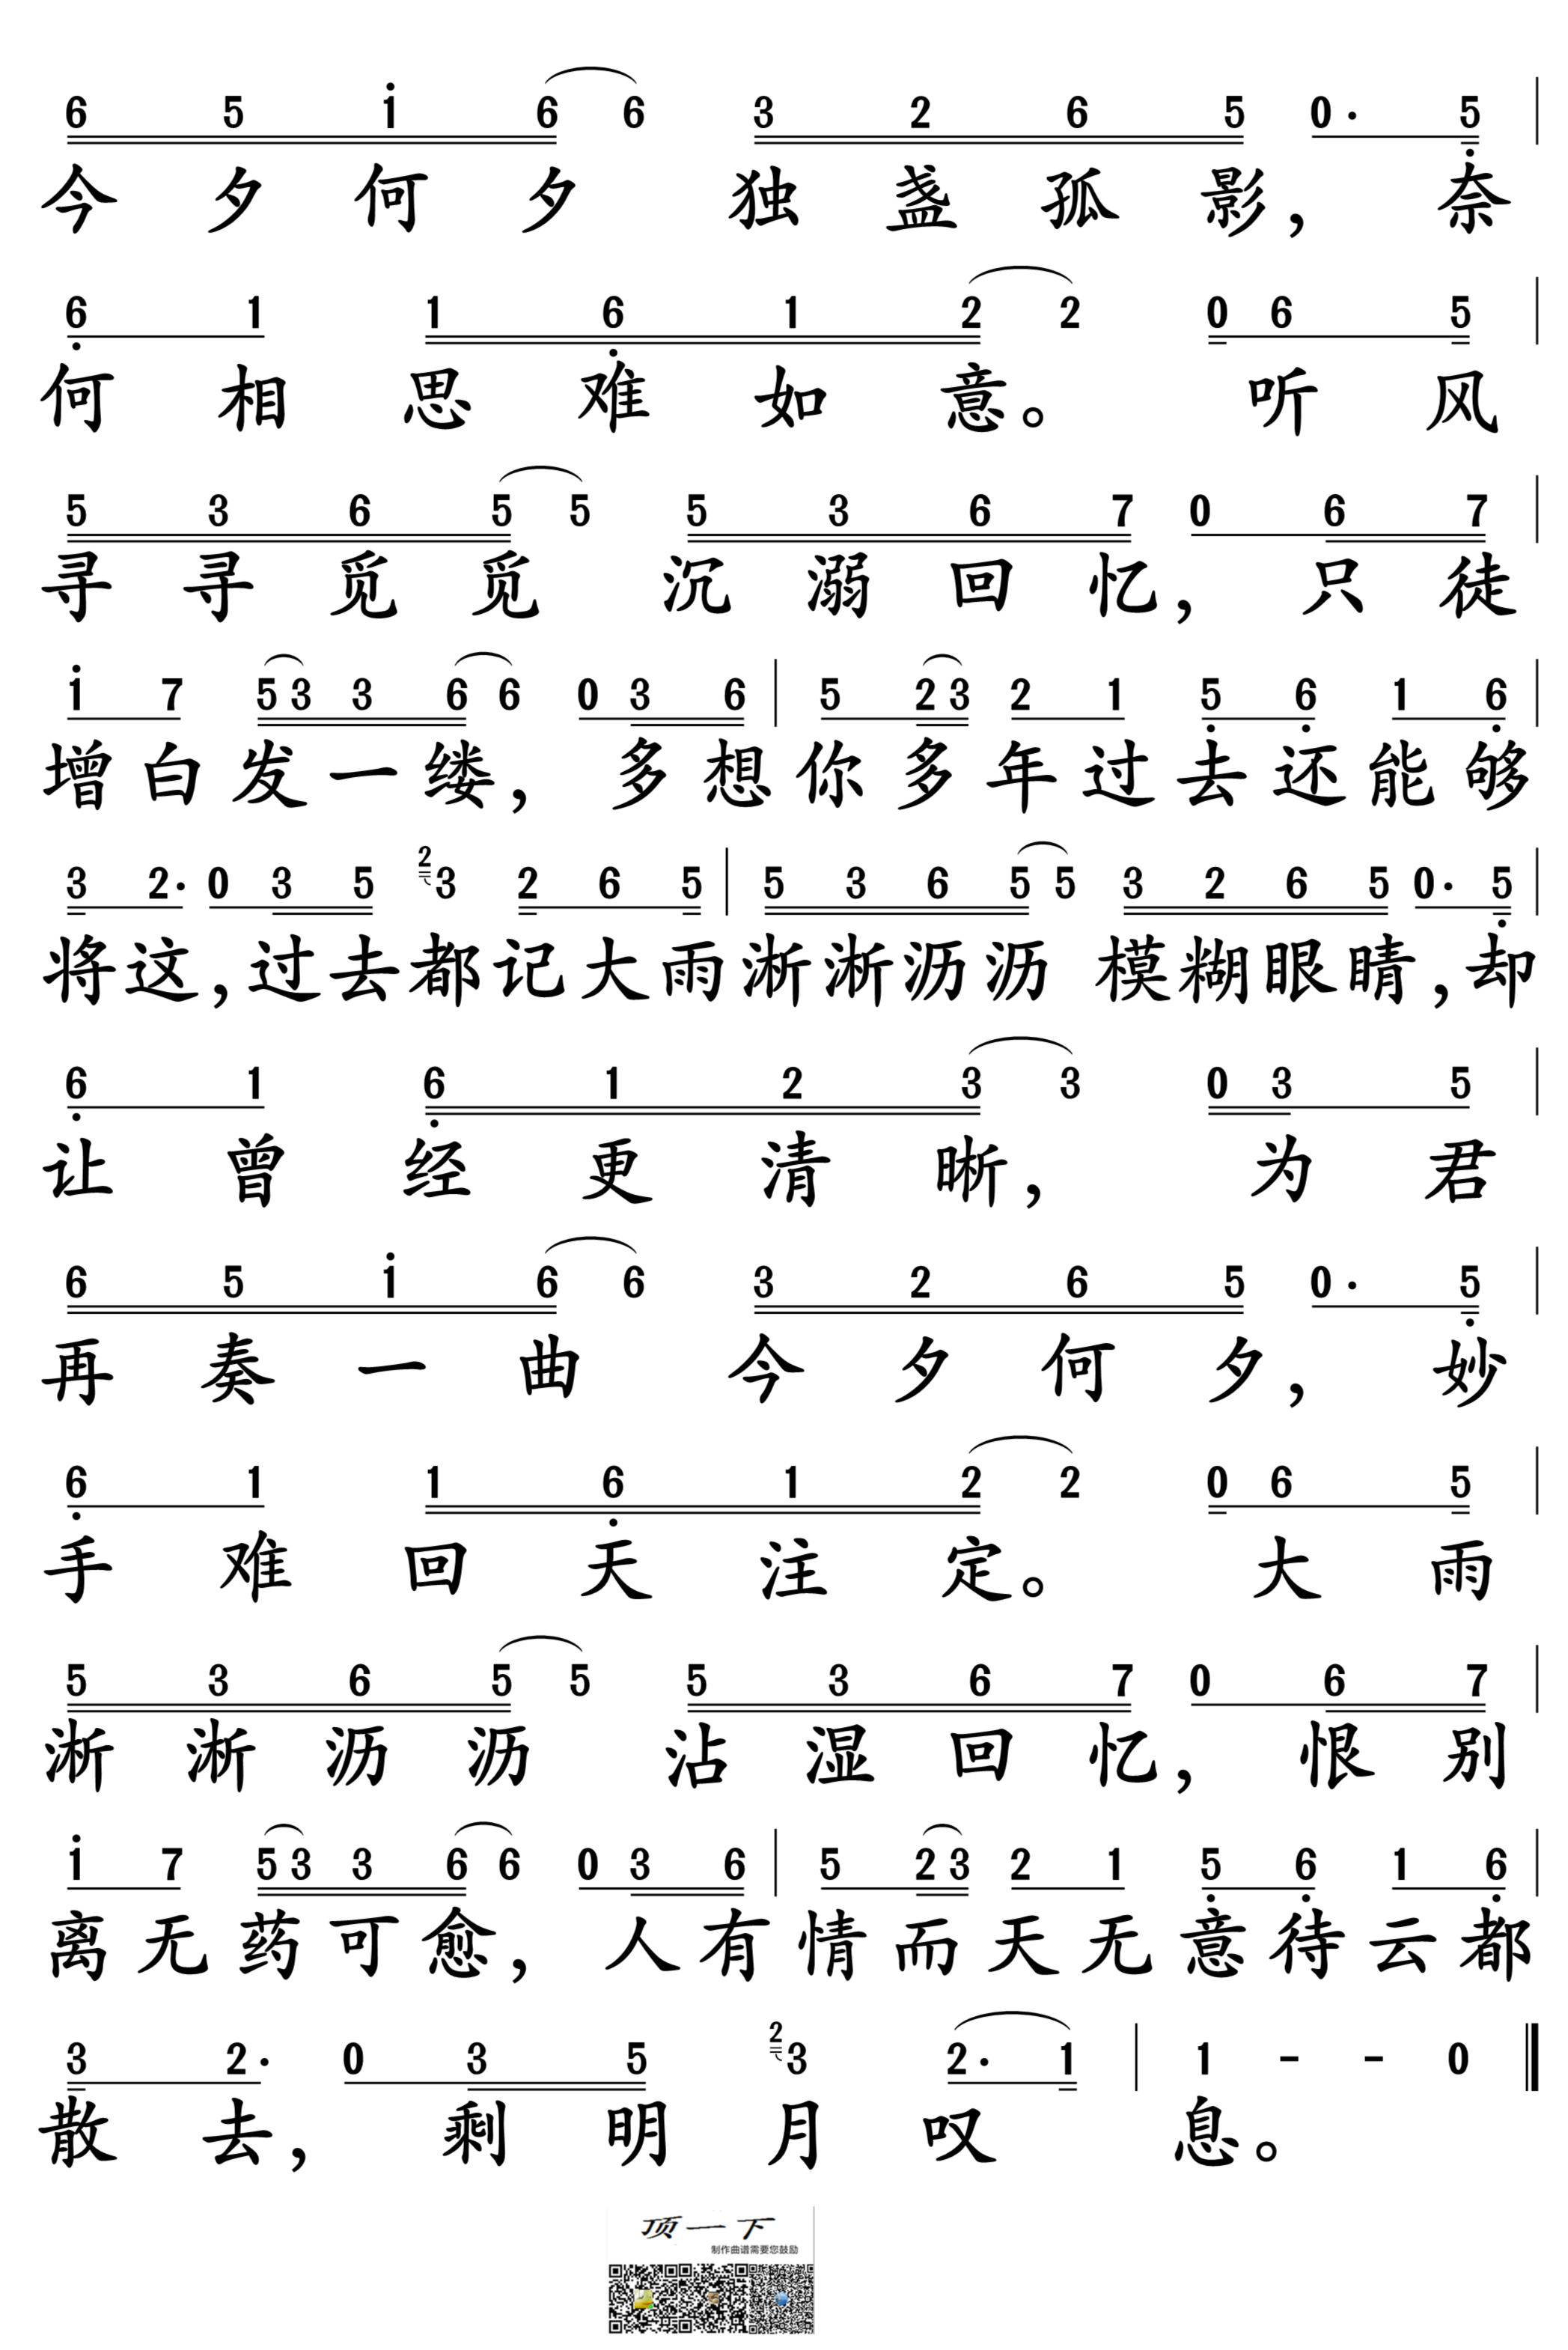 6 5 i 6 6 3 2 6 5 0· 5
今夕何夕 独盏孤影，奈
6 1 1 6 1 2 2 0 6 5
何相思难如意。 听风
5 3 6 5 5 5 3 6 7 0 6 7
寻寻觅觅 沉溺回忆，只徒
i 7 5 3 3 6 6 0 3 6 | 5 2 3 2 1 5 6 1 6
增白发一缕，多想你多年过去还能够
3 2· 0 3 5 2 3 2 6 5 | 5 3 6 5 5 3 2 6 5 0· 5
将这，过去都记大雨淅淅沥沥 模糊眼睛，却
6 1 6 1 2 3 3 0 3 5
让曾经更清晰， 为君
6 5 i 6 6 3 2 6 5 0· 5
再奏一曲 今夕何夕，妙
6 1 1 6 1 2 2 0 6 5
手难回天注定。 大雨
5 3 6 5 5 5 3 6 7 0 6 7
淅淅沥沥 沾湿回忆，恨别
i 7 5 3 3 6 6 0 3 6 | 5 2 3 2 1 5 6 1 6
离无药可愈，人有情而天无意待云都
3 2· 0 3 5 2 3 2· 1 | 1 - - 0
散去，剩明月叹息。
顶一下
制作曲谱需要您鼓励